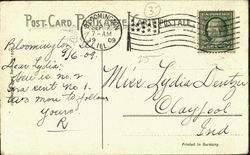 POST-CARD. POSTKARTE
BLOOMINGTON
SEP
7-AM
1909
ILL.
Bloomington Ill
9/6-09.
Dear Lydia:
Here is no. 2
Ora sent No. 1.
more to follow
Yours
R
Miss Lydia Dentzer
Clayfool
Ind
Printed in Germany.